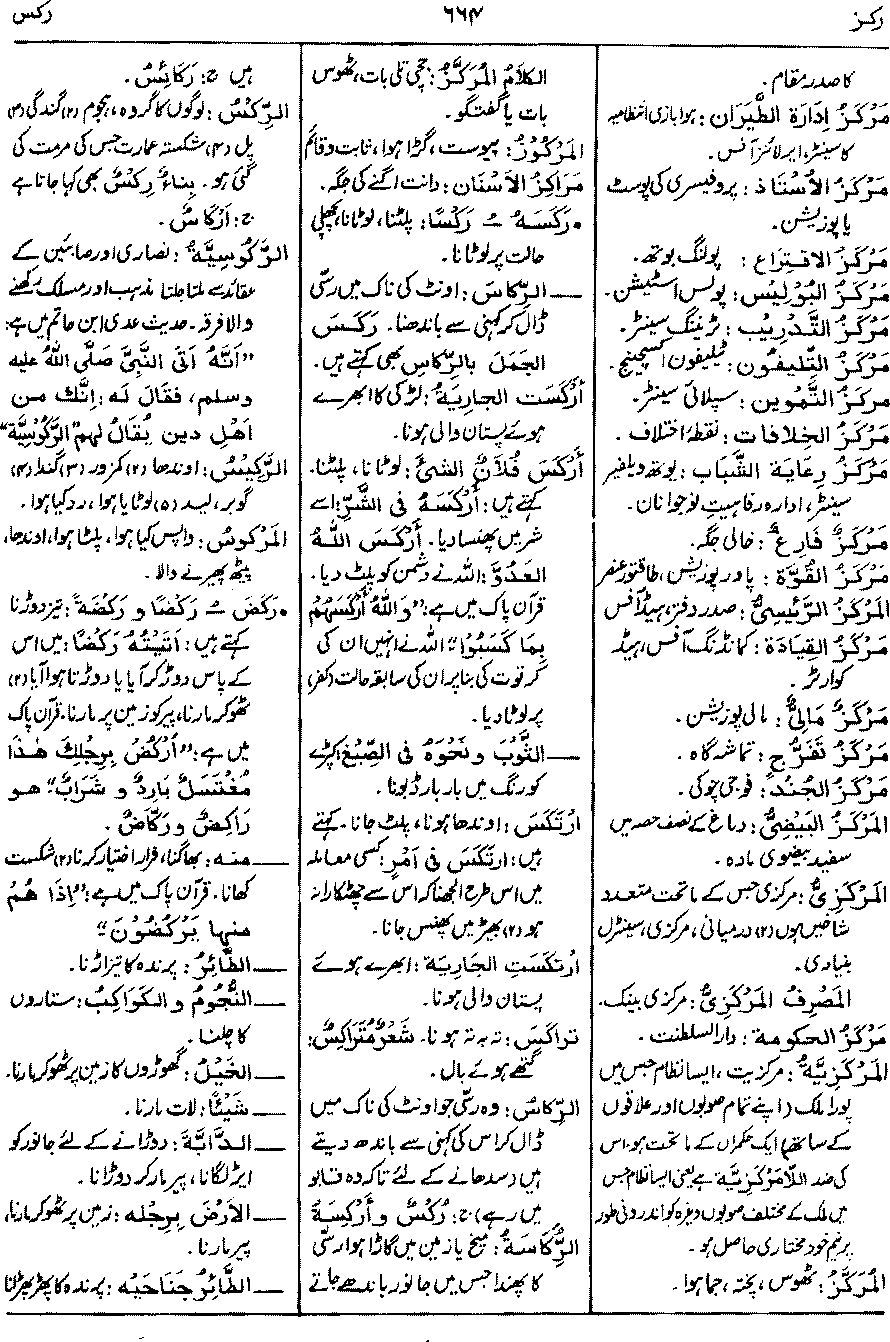 رکز
۶۶۴
رکس
کا صدر مقام۔
مَرْكَزُ إِدَارَةِ الطَّيَرَان : ہوا بازی انتظامیہ
کا سینٹر، ایر لائنز آفس۔
مَرْكَزُ الأُسْتَاذ : پروفیسری کی پوسٹ
یا پوزیشن۔
مَرْكَزُ الاقْتِرَاع : پولنگ بوتھ۔
مَرْكَزُ البُوْلِيْس : پولس اسٹیشن۔
مَرْكَزُ التَّدْرِيْب : ٹریننگ سینٹر۔
مَرْكَزُ التِّلِيفُون : ٹیلیفون ایکسچینج۔
مركزُ التَّمْوِين : سپلائی سینٹر۔
مَرْكَزُ الخِلافات : نقطۂ اختلاف۔
مَرْكَزُ رِعَايَةِ الشَّبَاب : یوتھ ویلفیر
سینٹر، ادارہ رفاہیت نوجوانان۔
مَرْكَزٌ فَارِغٌ : خالی جگہ۔
مَرْكَزُ القُوَّة : پاور پوزیشن، طاقتور عنصر
المَرْكَزُ الرَّئِيْسِيُّ : صدر دفتر، ہیڈ آفس
مَرْكَزُ القِيَادَة : کمانڈنگ آفس، ہیڈ
کوارٹر۔
مَرْكَزٌ مَالِيٌّ : مالی پوزیشن۔
مَرْكَزُ تَفَرُّج : تماشہ گاہ۔
مَرْكَزُ الجُنْد : فوجی چوکی۔
المَرْكَزُ البَيْضِيُّ : دماغ کے نصف حصہ میں
سفید بیضوی مادہ۔
المَرْكَزِيُّ : مرکزی جس کے ماتحت متعدد
شاخیں ہوں (۲) درمیانی، مرکزی، سینٹرل
بنیادی۔
المَصْرِفُ المَرْكَزِيُّ : مرکزی بینک۔
مَرْكَزُ الحكومة : دار السلطنت۔
المَرْكَزِيَّةُ : مرکزیت، ایسا نظام جس میں
پورا ملک (اپنے تمام صوبوں اور علاقوں
کے ساتھ) ایک حکمراں کے ماتحت ہو، اس
کی ضد اللَّامَرْكَزِيَّة ہے یعنی ایسا نظام جس
میں ملک کے مختلف صوبوں وغیرہ کو اندرونی طور
پر نیم خود مختاری حاصل ہو۔
المُرَكَّزُ : ٹھوس، پختہ، جما ہوا۔
الكلامُ المُرَكَّزُ : جچی تلی بات، ٹھوس
بات یا گفتگو۔
المَرْكُوزُ : پیوست، گڑا ہوا، ثابت و قائم
مَرَاكِزُ الأَسْنَان : دانت اگنے کی جگہ۔
• رَكَسَهُ ـُ رَكْسًا : پلٹنا، لوٹانا، پچھلی
حالت پر لوٹانا۔
— الرِّكَاسَ : اونٹ کی ناک میں رسّی
ڈال کر کہنی سے باندھنا۔ رَكَسَ
الجَمَلَ بالرِّكَاس بھی کہتے ہیں۔
أَرْكَسَتِ الجارِيَةُ : لڑکی کا ابھرے
ہوئے پستان والی ہونا۔
أَرْكَسَ فُلَانٌ الشَّئَ : لوٹانا، پلٹنا۔
کہتے ہیں : أَرْكَسَهُ فِى الشَّرِّ : اسے
شر میں پھنسا دیا۔ أَرْكَسَ اللّٰهُ
العَدُوَّ : اللہ نے دشمن کو پلٹ دیا۔
قرآن پاک میں ہے : ”وَاللّٰهُ أَرْكَسَهُمْ
بِمَا كَسَبُوْا“ اللہ نے انہیں ان کی
کرتوت کی بنا پر ان کی سابقہ حالت (کفر)
پر لوٹا دیا۔
— الثَّوْبَ وَنَحْوَهُ فِى الصِّبْغِ : کپڑے
کو رنگ میں بار بار ڈبونا۔
ارْتَكَسَ : اوندھا ہونا، پلٹ جانا۔ کہتے
ہیں : ارْتَكَسَ فِى أَمْرٍ : کسی معاملہ
میں اس طرح الجھنا کہ اس سے چھٹکارا نہ
ہو (۲) بھیڑ میں پھنس جانا۔
ارْتَكَسَتِ الجَارِيَة : ابھرے ہوئے
پستان والی ہونا۔
تَرَاكَسَ : تہ بہ تہ ہونا۔ شَعْرٌ مُتَرَاكِسٌ :
گتھے ہوئے بال۔
الرِّكَاسُ : وہ رسّی جو اونٹ کی ناک میں
ڈال کر اس کی کہنی سے باندھ دیتے
ہیں (سدھانے کے لئے تاکہ وہ قابو
میں رہے) ج : رُكُسٌ و أَرْكِسَةٌ
الرِّكَاسَةُ : میخ یا زمین میں گاڑا ہوا رسّی
کا پھندا جس میں جانور باندھے جاتے
ہیں ج : رَكَائِسُ۔
الرِّكْسُ : لوگوں کا گروہ، ہجوم (۲) گندگی (۳)
پل (۴) شکستہ عمارت جس کی مرمت کی
گئی ہو۔ بِنَاءٌ رِكْسٌ بھی کہا جاتا ہے
ج : أَرْكَاسٌ۔
الرَّكُوسِيَّةُ : نصاری اور صابئین کے
عقائد سے ملتا جلتا مذہب اور مسلک رکھنے
والا فرقہ۔ حدیث عدی ابن حاتم میں ہے :
”أَنَّهُ أَتَى النَّبِيَّ صَلَّى اللّٰهُ عليه
وسلم، فقَالَ لَه : إِنَّكَ مِن
أَهْلِ دين يُقَالُ لَهم الرَّكُوسِيَّة“
الرَّكِيسُ : اوندھا (۲) کمزور (۳) گندا (۴)
گوبر، لید (۵) لوٹایا ہوا، رد کیا ہوا۔
المَرْكُوسُ : واپس کیا ہوا، پلٹا ہوا، اوندھا،
پیٹھ پھیرنے والا۔
• رَكَضَ ـُ رَكْضًا و رَكْضَةً : تیز دوڑنا
کہتے ہیں : أَتَيْتُهُ رَكْضًا : میں اس
کے پاس دوڑ کر آیا یا دوڑتا ہوا آیا (۲)
ٹھوکر مارنا، پیر کو زمین پر مارنا۔ قرآن پاک
میں ہے : ”ارْكُضْ بِرِجْلِكَ هٰذَا
مُغْتَسَلٌ بَارِدٌ وَ شَرَابٌ“ ھو
رَاكِضٌ و رَكَّاضٌ۔
— منه : بھاگنا، فرار اختیار کرنا (۲) شکست
کھانا۔ قرآن پاک میں ہے : ”إِذَا هُمْ
منها يَرْكُضُوْنَ“
— الطَّائِرُ : پرندہ کا تیز اڑنا۔
— النُّجُومُ و الكَوَاكِبُ : ستاروں
کا چلنا۔
— الخَيْلُ : گھوڑوں کا زمین پر ٹھوکر مارنا۔
— شَيْئًا : لات مارنا۔
— الدَّابَّةَ : دوڑانے کے لئے جانور کو
ایڑ لگانا، پیر مار کر دوڑانا۔
— الأَرْضَ بِرِجْلِه : زمین پر ٹھوکر مارنا،
پیر مارنا۔
— الطَّائِرُ جَنَاحَيْهِ : پرندہ کا پھڑپھڑانا